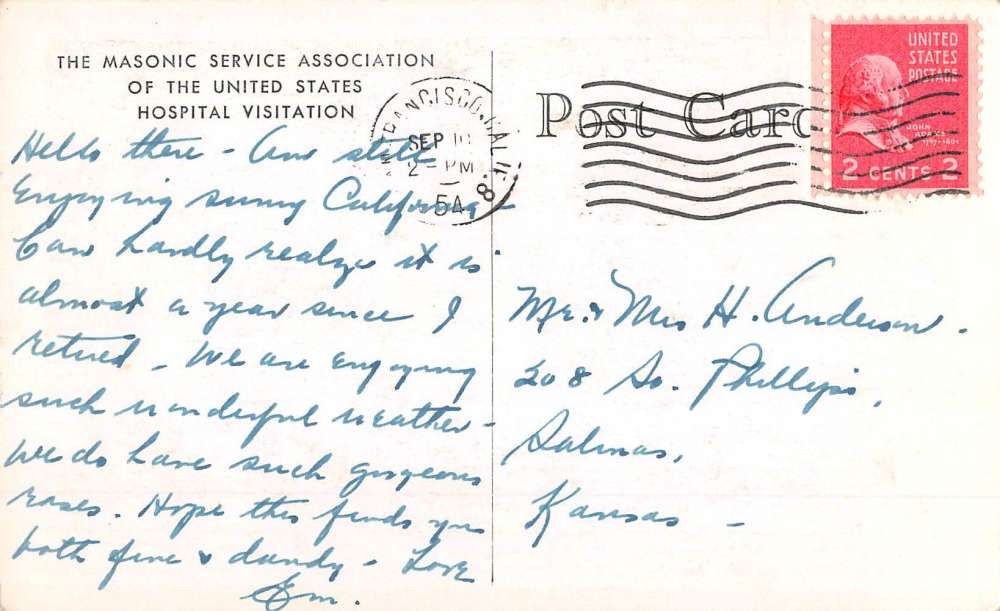 THE MASONIC SERVICE ASSOCIATION
OF THE UNITED STATES
HOSPITAL VISITATION
Hello there - Am still
Enjoying sunny California -
Can hardly realize it is
almost a year since I
retired - We are enjoying
such wonderful weather -
We do have such gorgeous
roses. Hope this finds you
both fine & dandy - Love
Em.
FRANCISCO, CALIF. 8
SEP
2 - PM
54
Post Card
UNITED
STATES
POSTAGE
JOHN
ADAMS
1797-1801
2 CENTS 2
Mr. & Mrs H. Anderson.
208 So. Phillips,
Salinas,
Kansas -